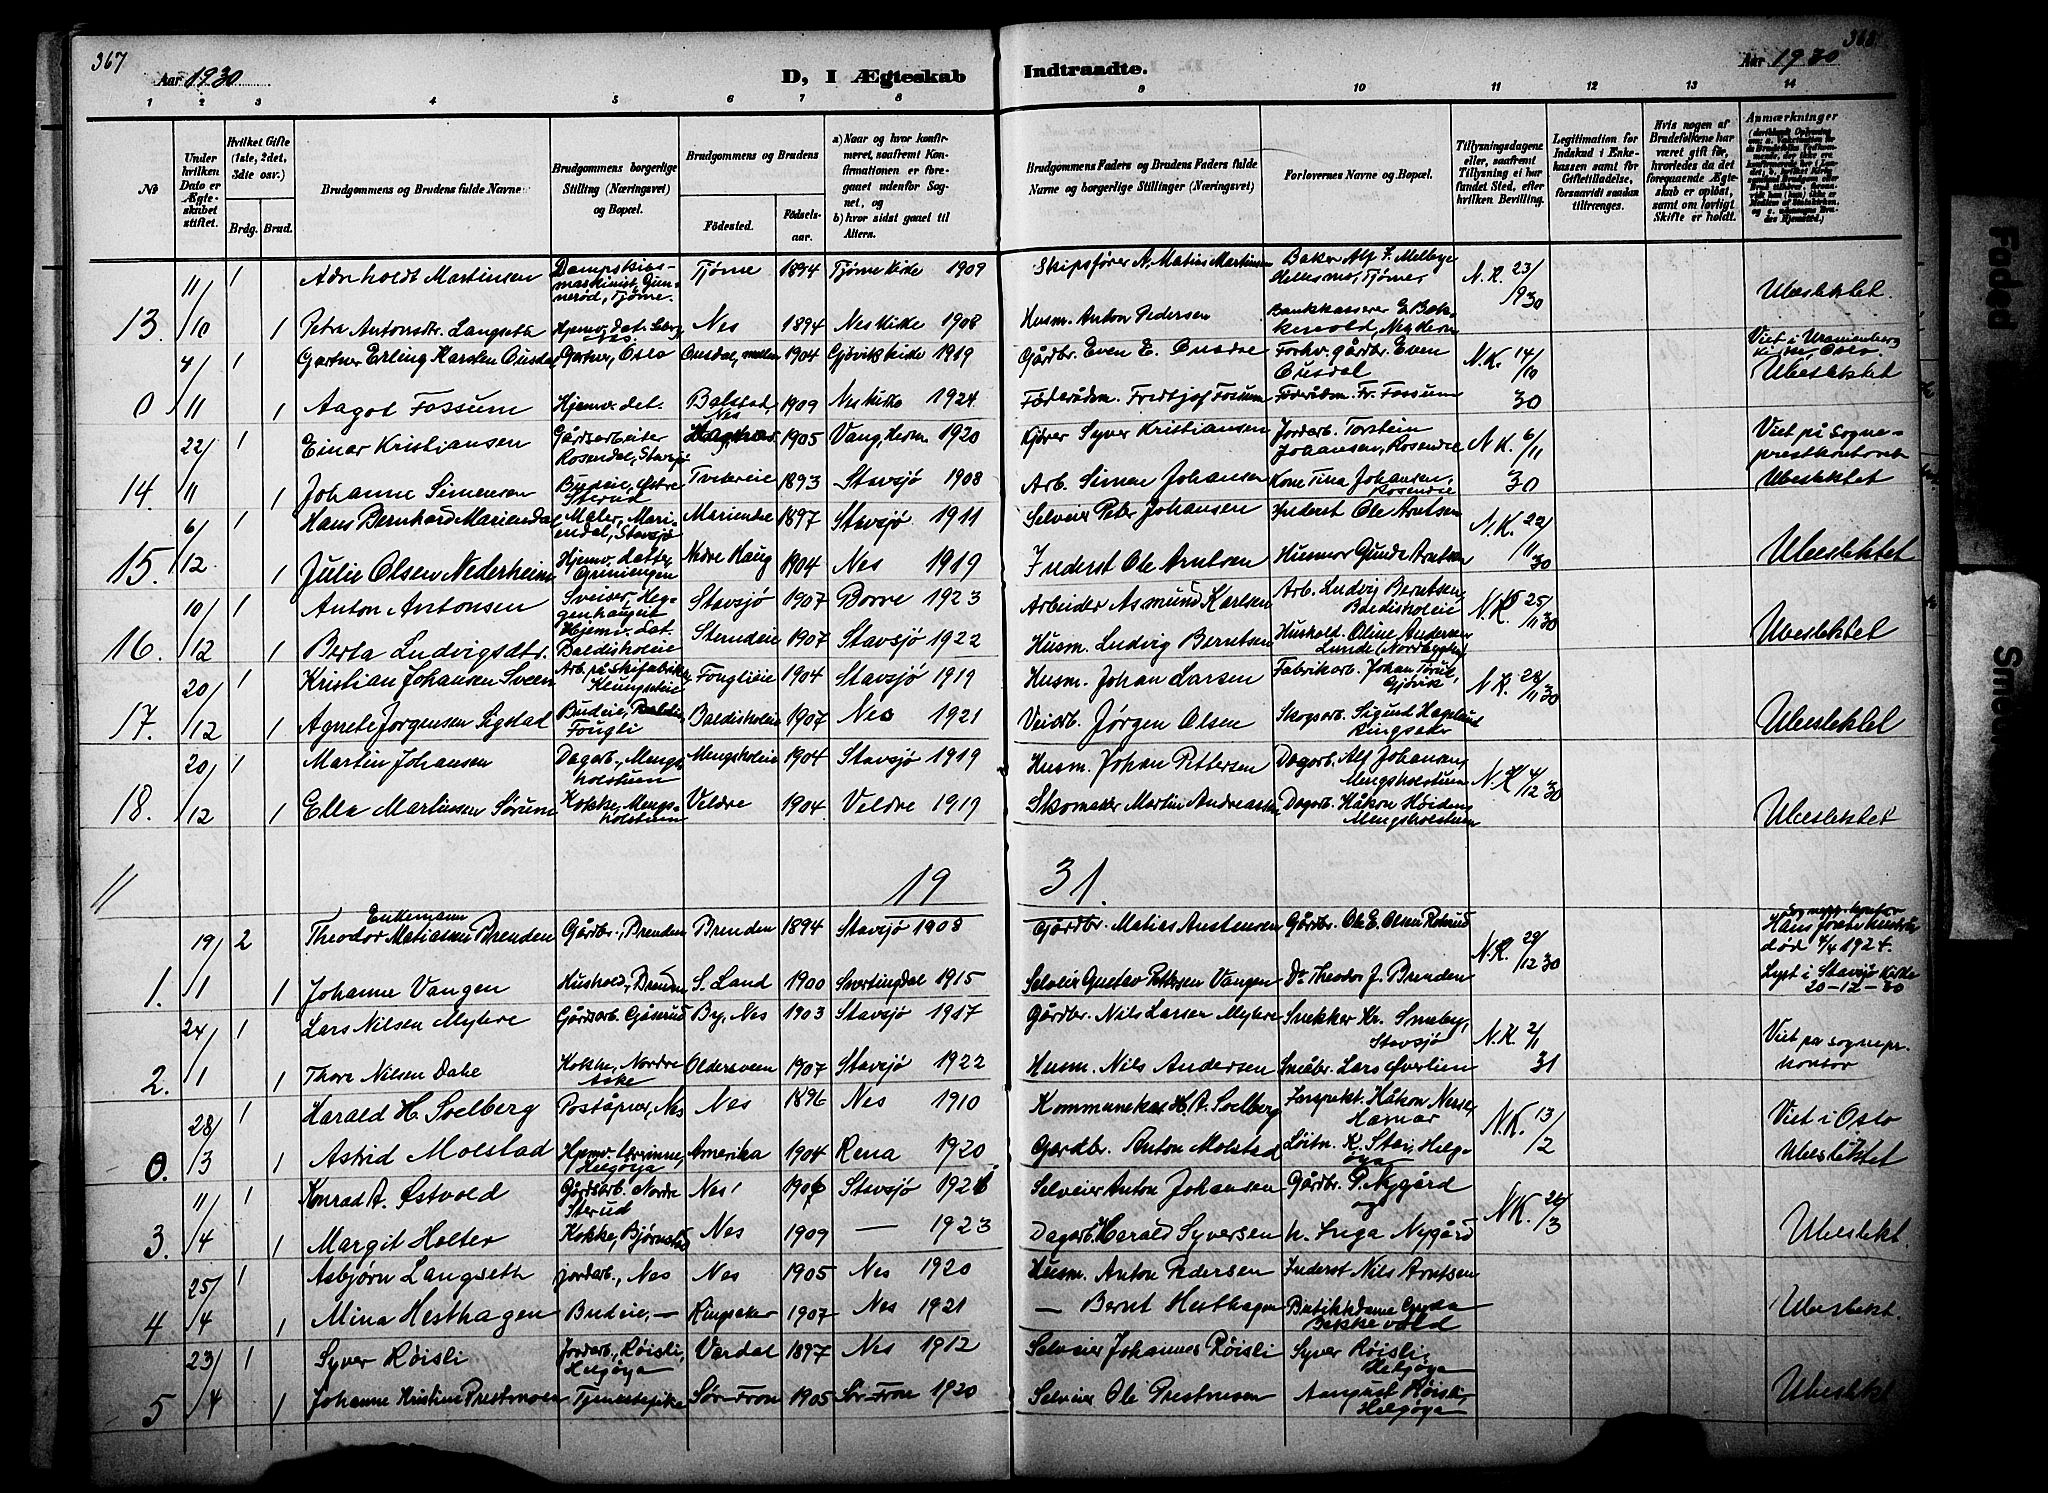 367
368
Aar 1930
D, I Ægteskab
Indtraadte.
Aar 1930
1 2 3 4 5 6 7 8
9 10 11 12 13 14
No
Under hvilken Dato er Ægteskabet stiftet.
Hvilket Gifte (1ste, 2det, 3die osv.)
Brdg. Brud.
Brudgommens og Brudens fulde Navne.
Brudgommens borgerlige Stilling (Næringsvei) og Bopæl.
Brudgommens og Brudens
Fødested.
Fødselsaar.
a) Naar og hvor konfirmeret, saafremt Konfirmationen er foregaaet udenfor Sognet, og
b) hvor sidst gaaet til Alters.
Brudgommens Faders og Brudens Faders fulde Navne og borgerlige Stillinger (Næringsvei)
Forlovernes Navne og Bopæl.
Tillysningsdagene eller, saafremt Tillysning ei har fundet Sted, efter hvilken Bevilling.
Legitimation for Indskud i Enkekassen samt for Giftetilladelse, forsaavidt saadan tiltrænges.
Hvis nogen af Brudefolkene har været gift før, hvorledes da det foregaaende Ægteskab er opløst, samt om lovligt Skifte er holdt.
Anmærkninger
11/10 1 Adnholdt Martinsen Dampskibsmaskinist, Gunnerød, Tjøme. Tjøme 1894 Tjøme kirke 1909 Skipsfører N. Matias Martinsen Baker Alf F. Melbye Hellesmo, Tjøme N.K. 23/9 30 Ubeslektet.
13. 1 Petra Antonsdtr. Langseth Hjemv. dat. Nes Nes 1894 Nes kirke 1908 Husm. Anton Pedersen Bankkasserer E. Bakkevold, Neskirken
7/11 1 Gartner Erling Karsten Ousdal Gartner, Oslo Ousdal 1904 Gjøvik kirke 1919 Gårdbr. Even E. Ousdal Forhv. gårdbr. Even Ousdal N.K. 14/10 30 Viet i Uranienborg kirke, Oslo. Ubeslektet
0 1 Aagot Fossum Hjemv. dat. Balstad, Nes 1909 Nes kirke 1924. Föderådm. Fredtjof Fossum Föderådm. Fr. Fossum
22/11 1 Einar Kristiansen Gårdsarbeiter Rosendal, Stavsjø 1905 Vang, Hedm. 1920 Kjører Syver Kristiansen Jordarb. Torstein Johansen, Rosendal N.K. 6/11 30 Viet på sogneprestkontoret Ubeslektet
14. 1 Johanne Simensen Budeie, Østre Sterud Tvetereie 1893 Stavsjø 1908 Arb. Simen Johansen Kone Tina Johansen, Rosendal
6/12 1 Hans Bernhard Mariendal Maler, Mariendal, Stavsjø Mariendal 1897 Stavsjø 1911 Selveier Peter Johansen Inderst Ole Arntsen N.K. 22/11 30 Ubeslektet
15. 1 Julie Olsen Nederheim Hjemv. datter Griniengen Nedre Haug 1904 Nes 1919 Inderst Ole Arntsen Husmor Gunda Arntsen
10/12 1 Anton Antonsen Sveiser, Heggenhaugen Stavsjø 1907 Borre 1923 Arbeider Asmund Karlsen Arb. Ludvig Berntsen Baldisholeie N.K. 25/11 30 Ubeslektet
16. 1 Berta Ludvigsdtr. Hjemv. dat. Baldisholeie Sterudeie 1907 Stavsjø 1922 Husm. Ludvig Berntsen Hushold. Oline Andersen Lunde (Nordbygden)
20/12 1 Kristian Johansen Sveen Arb. på skifabrikk, Klungseteie Fonglieie 1904 Stavsjø 1919 Husm. Johan Larsen Fabrikarb. Johan Torud, Gjøvik N.K. 28/11 30
17. 1 Agnete Jørgensen Sigstad Budeie, Fongli Baldisholeie 1907 Nes 1921 Veiarb. Jørgen Olsen Skogsarb. Sigurd Haglund Ringsaker Ubeslektet
20/12 1 Martin Johansen Dagarb., Mengsholstuen Mengsholeie 1904 Stavsjø 1919 Husm. Johan Pettersen Dagarb. Alf Johansen, Mengsholstuen N.K. 4/12 30
18. 1 Ella Martinsen Sørum Kokke, Mengsholstuen Veldre 1904. Veldre 1919 Skomaker Martin Andreassen Dagarb. Håkon Høiden, Mengsholstuen Ubeslektet
19 31.
19/1 2 Enkemann Theodor Matiasen Brenden Gårdbr., Brenden Brenden 1894 Stavsjø 1908 Gårdbr. Matias Austensen Gårdbr. Ole E. Olsen Rosrud N.K. 29/12 30 Sognepr. kontor Hans forste hustru död 4/4 1924.
1. 1 Johanne Vangen Hushold., Brenden S. Land 1900 Snertingdal 1915 Selveier Gustav Pettersen Vangen Do Theodor J. Brenden Lyst i Stavsjø kirke 20-12-30
24/1 1 Lars Nilsen Myhre Gårdsarb. Gjøsrud By, Nes 1903 Stavsjø 1917 Gårdbr. Nils Larsen Myhre Snekker Kr. Smeby, Stavsjø N.K. 2/1 31 Viet på sognepr. kontor
2. 1 Thora Nilsen Dahl Kokke, Nordre Aske Oldersveen 1907 Stavsjø 1922 Husm. Nils Andersen Småbr. Lars Øverlien
28/3 1 Harald H. Solberg Poståpner, Nes Nes 1896 Nes 1910 Kommunekas. H. A. Solberg Inspekt. Håkon Nesse, Hamar N.K. 13/2 Viet i Oslo
0. 1 Astrid Molstad Hjemv. lærerinne, Helgøya Amerika 1904 Rena 1920 Gardbr. Anton Molstad Löitn. K. Stai, Helgøya Ubeslektet
11/4 1 Konrad A. Østvold Gårdsarb. Nordre Sterud Nes 1906 Stavsjø 1921 Selveier Anton Johansen Gårdbr. P. Nygård og N.K. 26/3
3. 1 Margit Holter Kokke, Bjørnstad Nes 1909 — 1923 Dagarb. Harald Syversen h. Inga Nygård Ubeslekt.
25/4 1 Asbjørn Langseth jordarb., Nes Nes 1905 Nes 1920 Husm. Anton Pedersen Inderst Nils Arntsen
4 1 Mina Hesthagen Budeie, — Ringsaker 1907 Nes 1921 — Bernt Hesthagen Butikkdame Gunda Bakkevold Ubeslekt.
23/4 1 Syver Røisli Jordarb., Røisli, Helgøya Vardal 1897 Nes 1912 Selveier Johannes Røisli Syver Røisli, Helgøya
5 1 Johanne Kristine Prestmoen Tjenestepike Sør-Fron 1905 Sør-Fron 1920 Selveier Ole Prestmoen Aangust Røisli, Helgøya Ubeslekt.
Faded